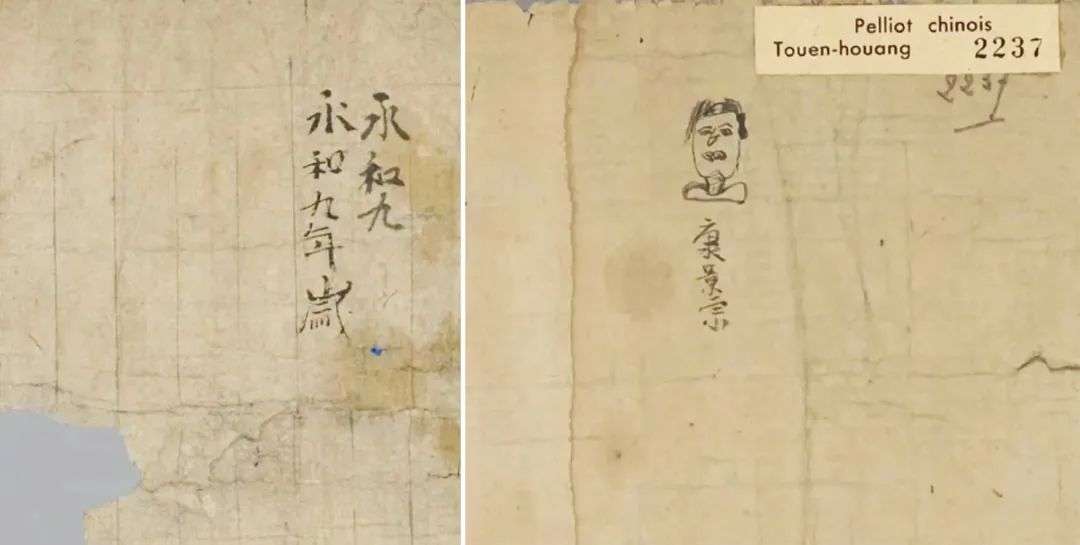 永和九
永和九年歲
Pelliot chinois
Touen-houang 2237
2237
康景宗